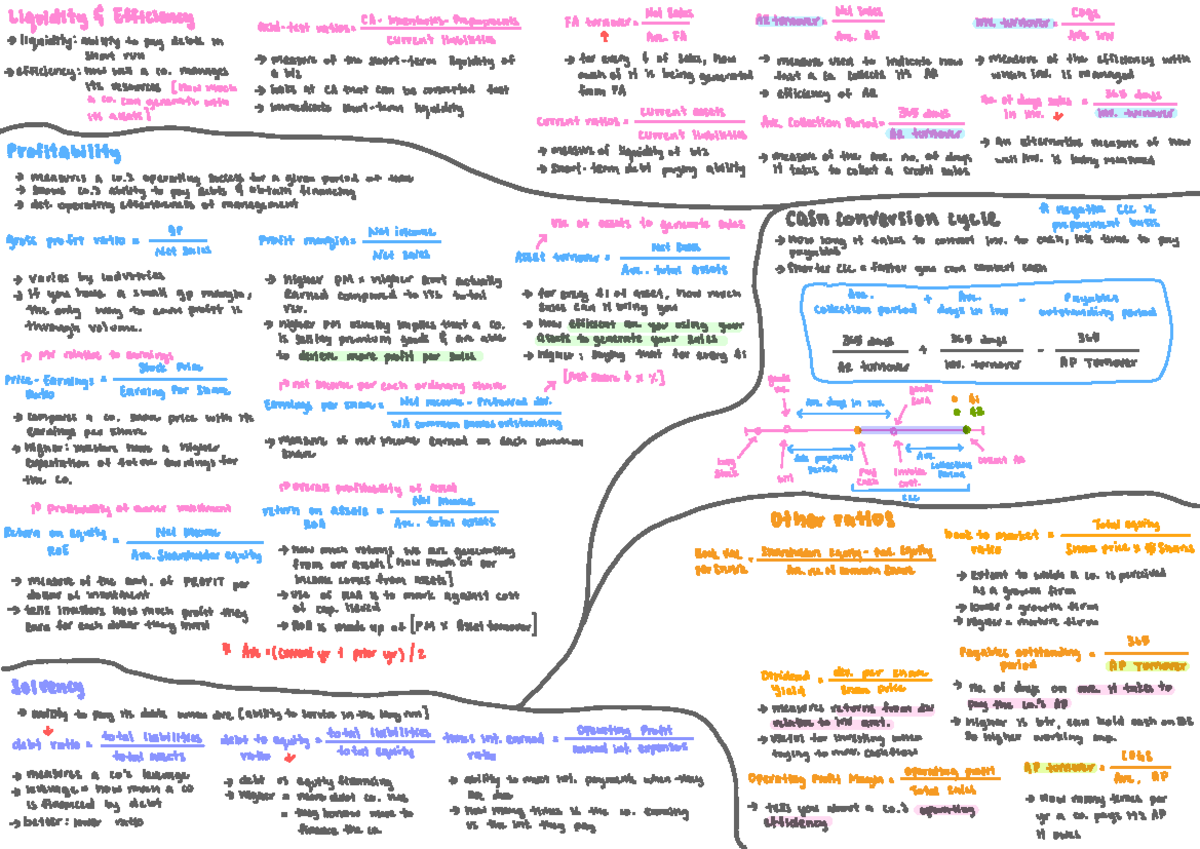 Liquidity & Efficiency
→ liquidity: ability to pay debts in
short run
→ efficiency: how well a co. manages
its resources [how much
a co. can generate with
its assets]
Acid-test ratios = CA - Inventories - Prepayments
current liabilities
→ measure of the short-term liquidity of
a biz
→ CA that can be converted fast
→ immediate short-term liquidity
FA turnover = Net Sales
Ave. FA
→ for every $ of sales, how
much of it is being generated
from FA
Current ratios = current assets
current liabilities
→ measure of liquidity of biz
→ short-term debt paying ability
AR turnover = Net Sales
Ave. AR
→ measure used to indicate how
fast a co. collects its AR
→ efficiency of AR
Ave. Collection Period = 365 days
AR turnover
→ measure of the Ave. no. of days
it takes to collect a credit sales
Inv. turnover = COGS
Ave. Inv
→ measure of the efficiency with
which inv. is managed
no. of days sales in inv. = 365 days
Inv. turnover
→ An alternative measure of how
well inv. is being managed
Profitability
→ measures a co.'s operating success for a given period of time
→ shows co.'s ability to pay debts & obtain financing
→ det. operating effectiveness of management
Gross profit ratio = GP
Net sales
→ varies by industries
→ if you have a small gp margin,
the only way to earn profit is
through volume.
Profit margin = Net income
Net sales
→ Higher PM = higher amt actually
earned compared to its total
rev.
→ Higher PM usually implies that a co.
is selling premium goods & are able
to derive more profit per sales
use of assets to generate sales
Asset turnover = Net sales
Ave. total assets
→ for every $1 of asset, how much
sales can it bring you
→ How efficient are you using your
assets to generate your sales
→ Higher: saying that for every $1
[Net sales ↑ x %]
Price-Earnings Ratio = Stock Price
Earning Per Share
→ compares a co. share price with its
earnings per share
→ higher: investors have a higher
expectation of future earnings for
the co.
net income per each ordinary share
Earnings per share = Net income - Preferred div.
WA common shares outstanding
→ measure of net income earned on each common
share
profitability of owner investment
Return on equity ROE = Net Income
Ave. Shareholder equity
→ measure of the amt. of PROFIT per
dollar of investment
→ tells investors how much profit they
earn for each dollar they invest
overall profitability of asset
return on assets ROA = Net Income
Ave. total assets
→ how much returns we are generating
from our assets [how much of our
income comes from assets]
→ use of ROA is to mark against cost
of cap. issued
→ ROA is made up of [PM x Asset turnover]
* Ave = (current yr + prior yr) / 2
Cash Conversion cycle
* negative CCC is
prepayment
→ How long it takes to convert inv. to cash, less time to pay
payables
→ Shorter CCC = faster you can convert cash
Ave. collection period + Ave. days in inv - Payables outstanding period
365 days + 365 days - 365
AR turnover Inv. turnover AP Turnover
Ave. days in inv.
payment
period
Ave.
collection
period
Pay
cash
Invoice
cust.
CCC
Solvency
→ ability to pay its debts when due [ability to survive in the long run]
debt ratio = total liabilities
total assets
→ measures a co's leverage
→ leverage = how much a co
is financed by debt
→ better: lower ratio
debt to equity ratio = total liabilities
total equity
→ debt vs equity financing
→ Higher = more debt co. has
= they borrow more to
finance the co.
times int. earned ratio = Operating Profit
int. expenses
→ ability to meet int. payments when they
are due
→ How many times is the co. earning
vs the int. they pay
Other ratios
Book val. per share = Shareholders Equity - Pref. Equity
Ave. no. of common share
book to market ratio = Total equity
share price x # shares
→ Extent to which a co. is perceived
as a growth firm
→ lower = growth firm
→ Higher = mature firm
Dividend Yield = div. per share
share price
→ measures returns from div
relative to inv amt.
→ useful for investing when
Payables outstanding period = 365
AP Turnover
→ no. of days on ave. it takes to
pay the co.'s AP
→ Higher is btr, can hold cash
so higher working cap.
Operating Profit Margin = Operating profit
Total sales
→ tells you about a co.'s operating
efficiency
AP turnover = COGS
Ave. AP
→ How many times per
yr a co. pays its AP